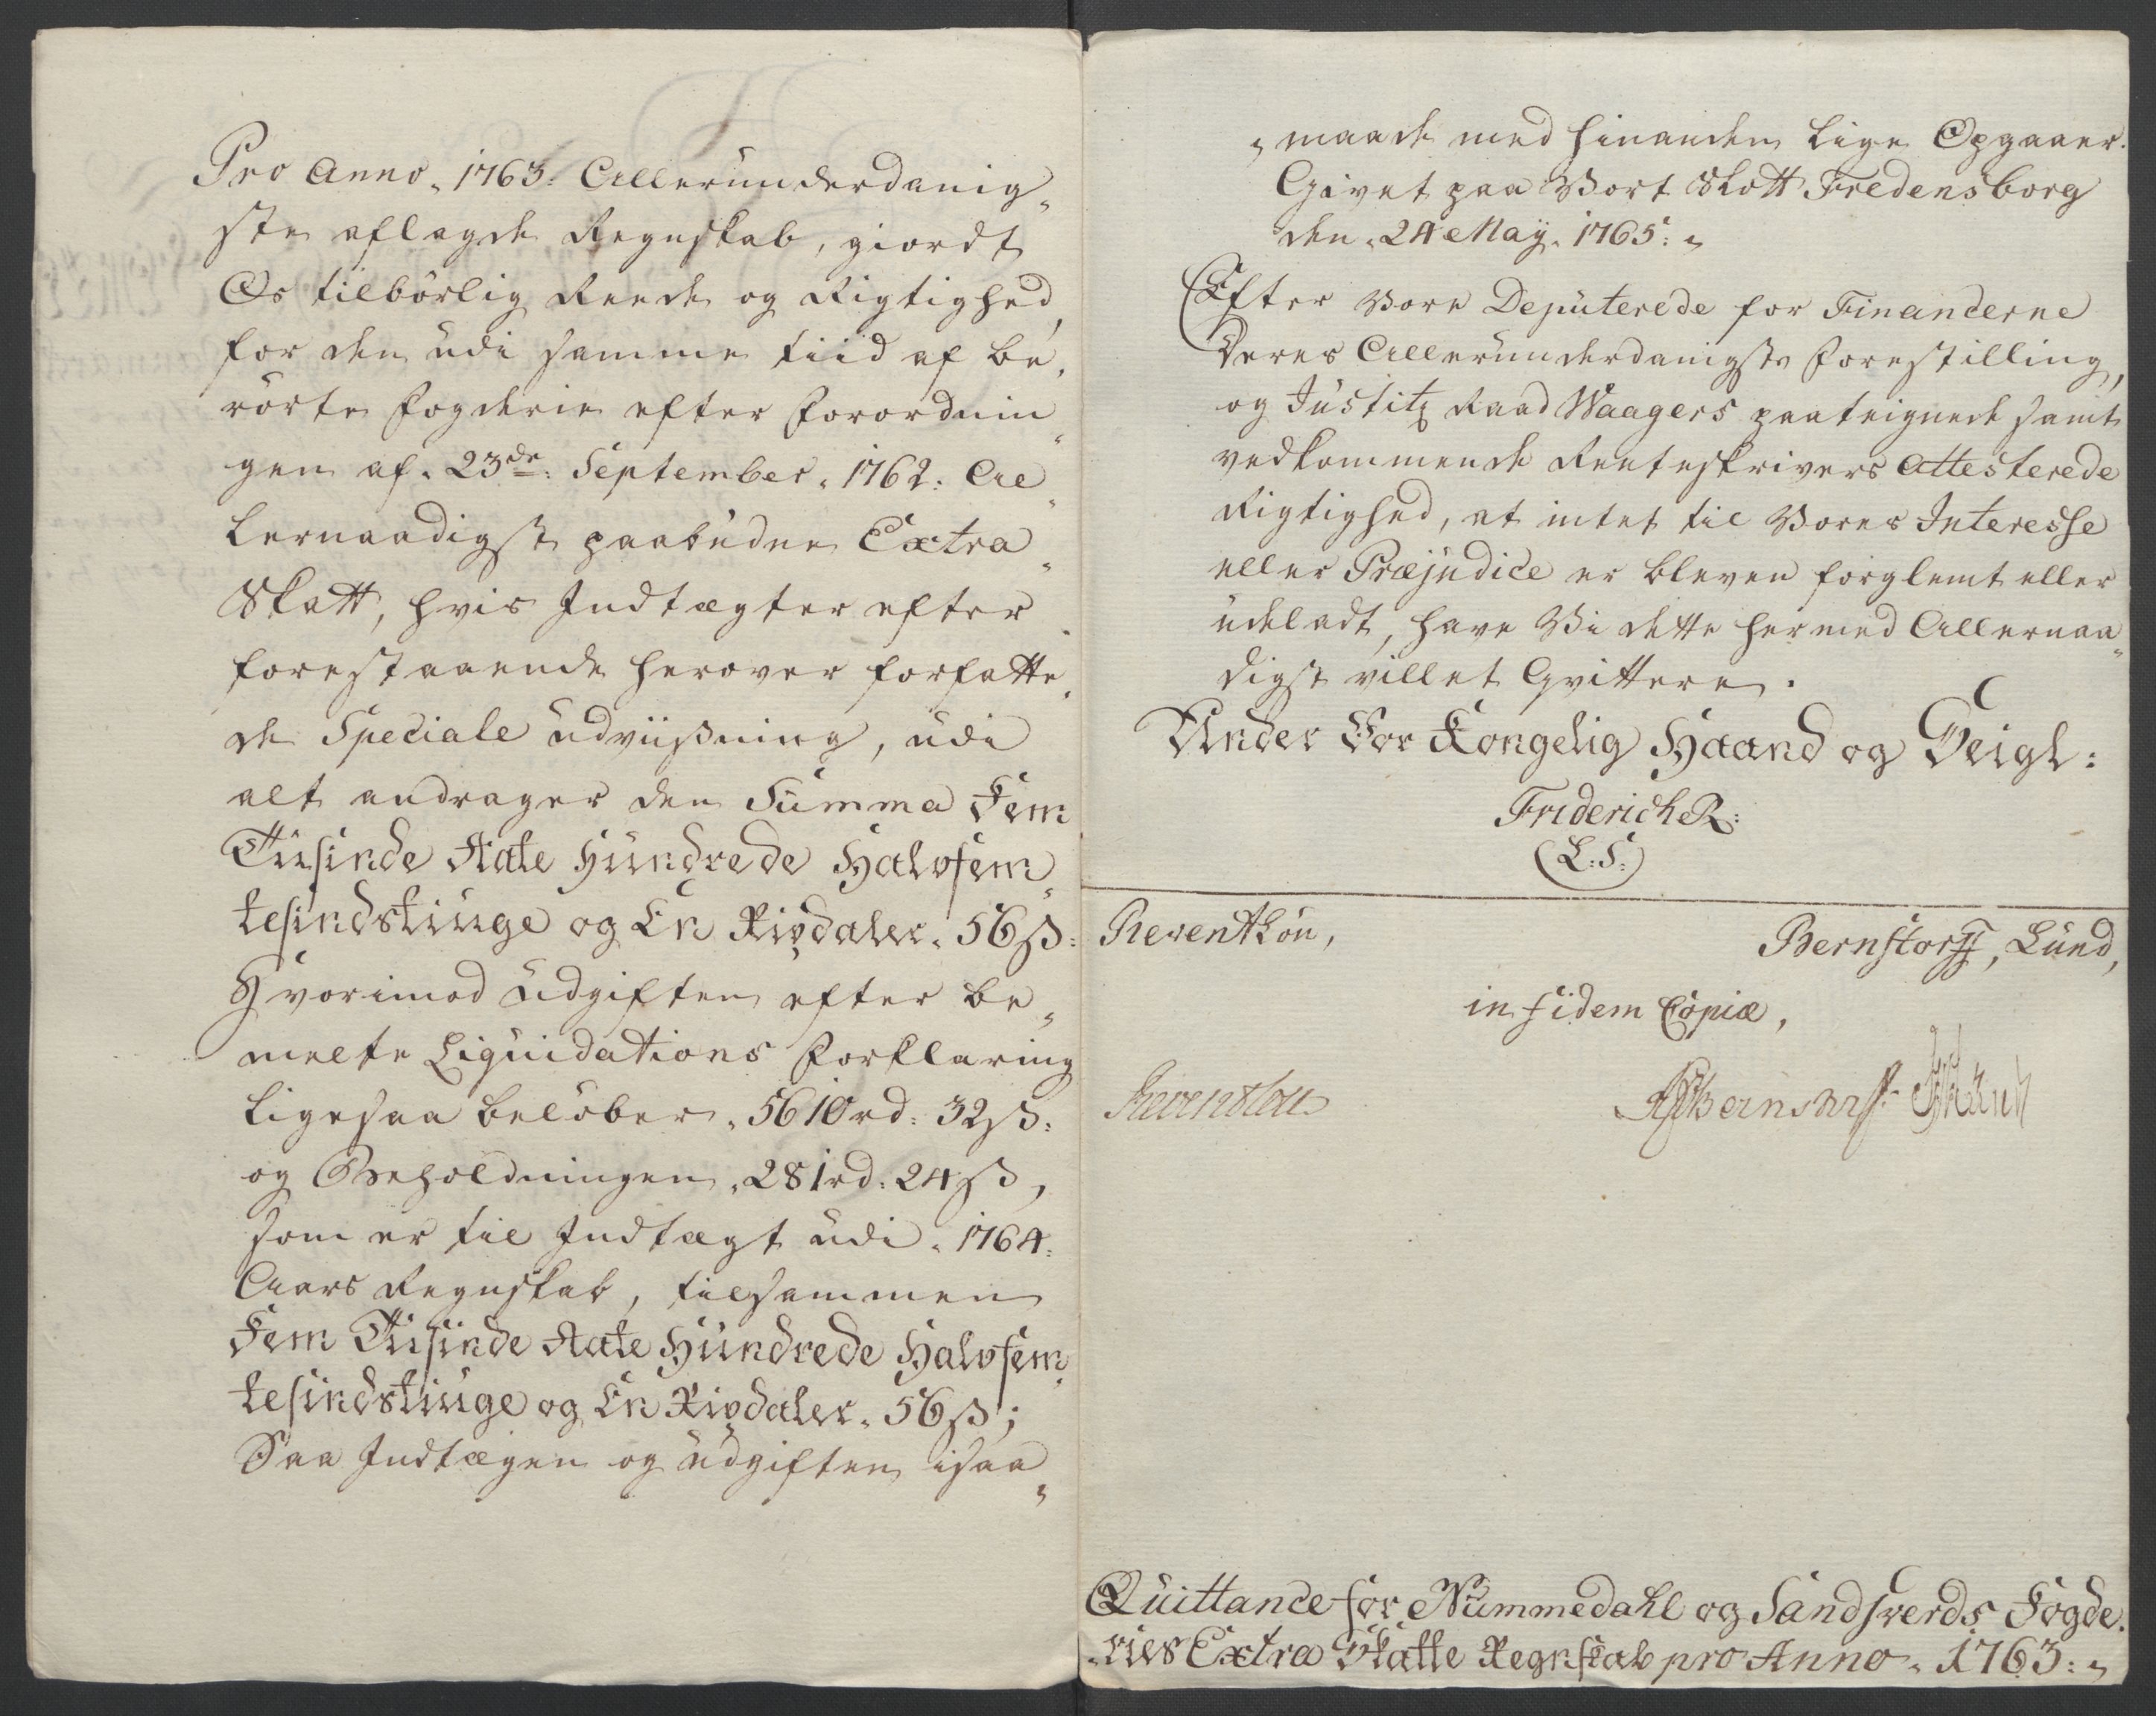 Pro Anno. 1763. Allerunderdanig„
ste aflagde Regnskab, giordt
Os tilbörlig Reede og Rigtighed,
for den udi samme tiid af be„
rörte Fogderie efter Forordnin„
gen af. 23de: September. 1762. Al„
lernaadigst paabudne Extra„
Skatt, hvis Indtægter efter
forestaaende herover forfatte„
de Speciale udviisning, udi
alt andrager den Summa Fem
Tusinde Aate Hundrede Halvfem„
tesindstiuge og En Rixdaler. 56 ß:
Hvorimod Udgiften efter be„
melte Liquidations Forklaring
ligesaa belöber. 5610 rd: 32 ß.
og Beholdningen. 281 rd: 24 ß,
som er til Indtægt udi. 1764.
Aars Regnskab, tilsammen
Fem Tusinde Aate Hundrede Halvfem„
tesindstiuge og En Rixdaler. 56 ß;
Saa Indtægen og udgiften isaa„
„maade med hinanden lige Opgaaer.
Givet paa Vort Slott Fredensborg
den. 24 May. 1765.
Efter Vore Deputerede for Financerne
Deres Allerunderdanigste Forestilling,
og Justitz Raad Waagers paateignede samt
vedkommende Renteskrivers Attesterede
Rigtighed, at intet til Vores Interesse
eller Præjudice er bleven forglemt eller
udeladt, have Vi dette hermed Allernaa„
digst villet Qvittere.
Under Vor Kongelig Haand og Seigl:
Friderich R:
(L:S:)
Reventlou,
Bernstorff, Lund,
in fidem Copiæ,
Reventlou
Bernstorff. Lund
Quittance for Nummedahl og Sandsverds Fogde„
„ries Extra Skatte Regnskab pro Anno. 1763.